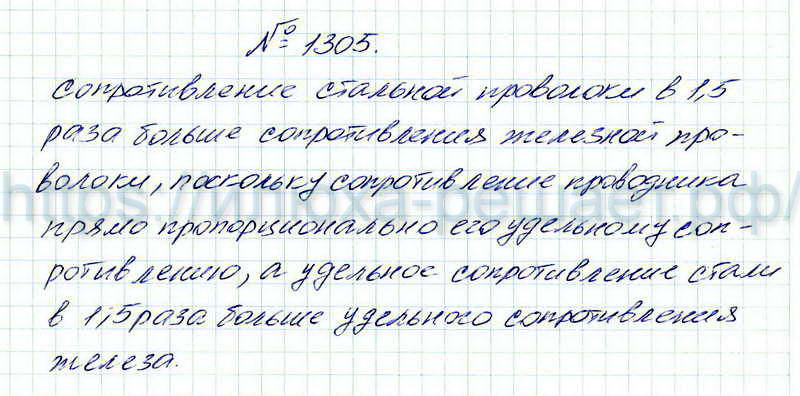 № 1305.
сопротивление стальной проволоки в 1,5
раза больше сопротивления железной про-
волоки, поскольку сопротивление проводника
прямо пропорционально его удельному соп-
ротивлению, а удельное сопротивление стали
в 1,5 раза больше удельного сопротивления
железа.